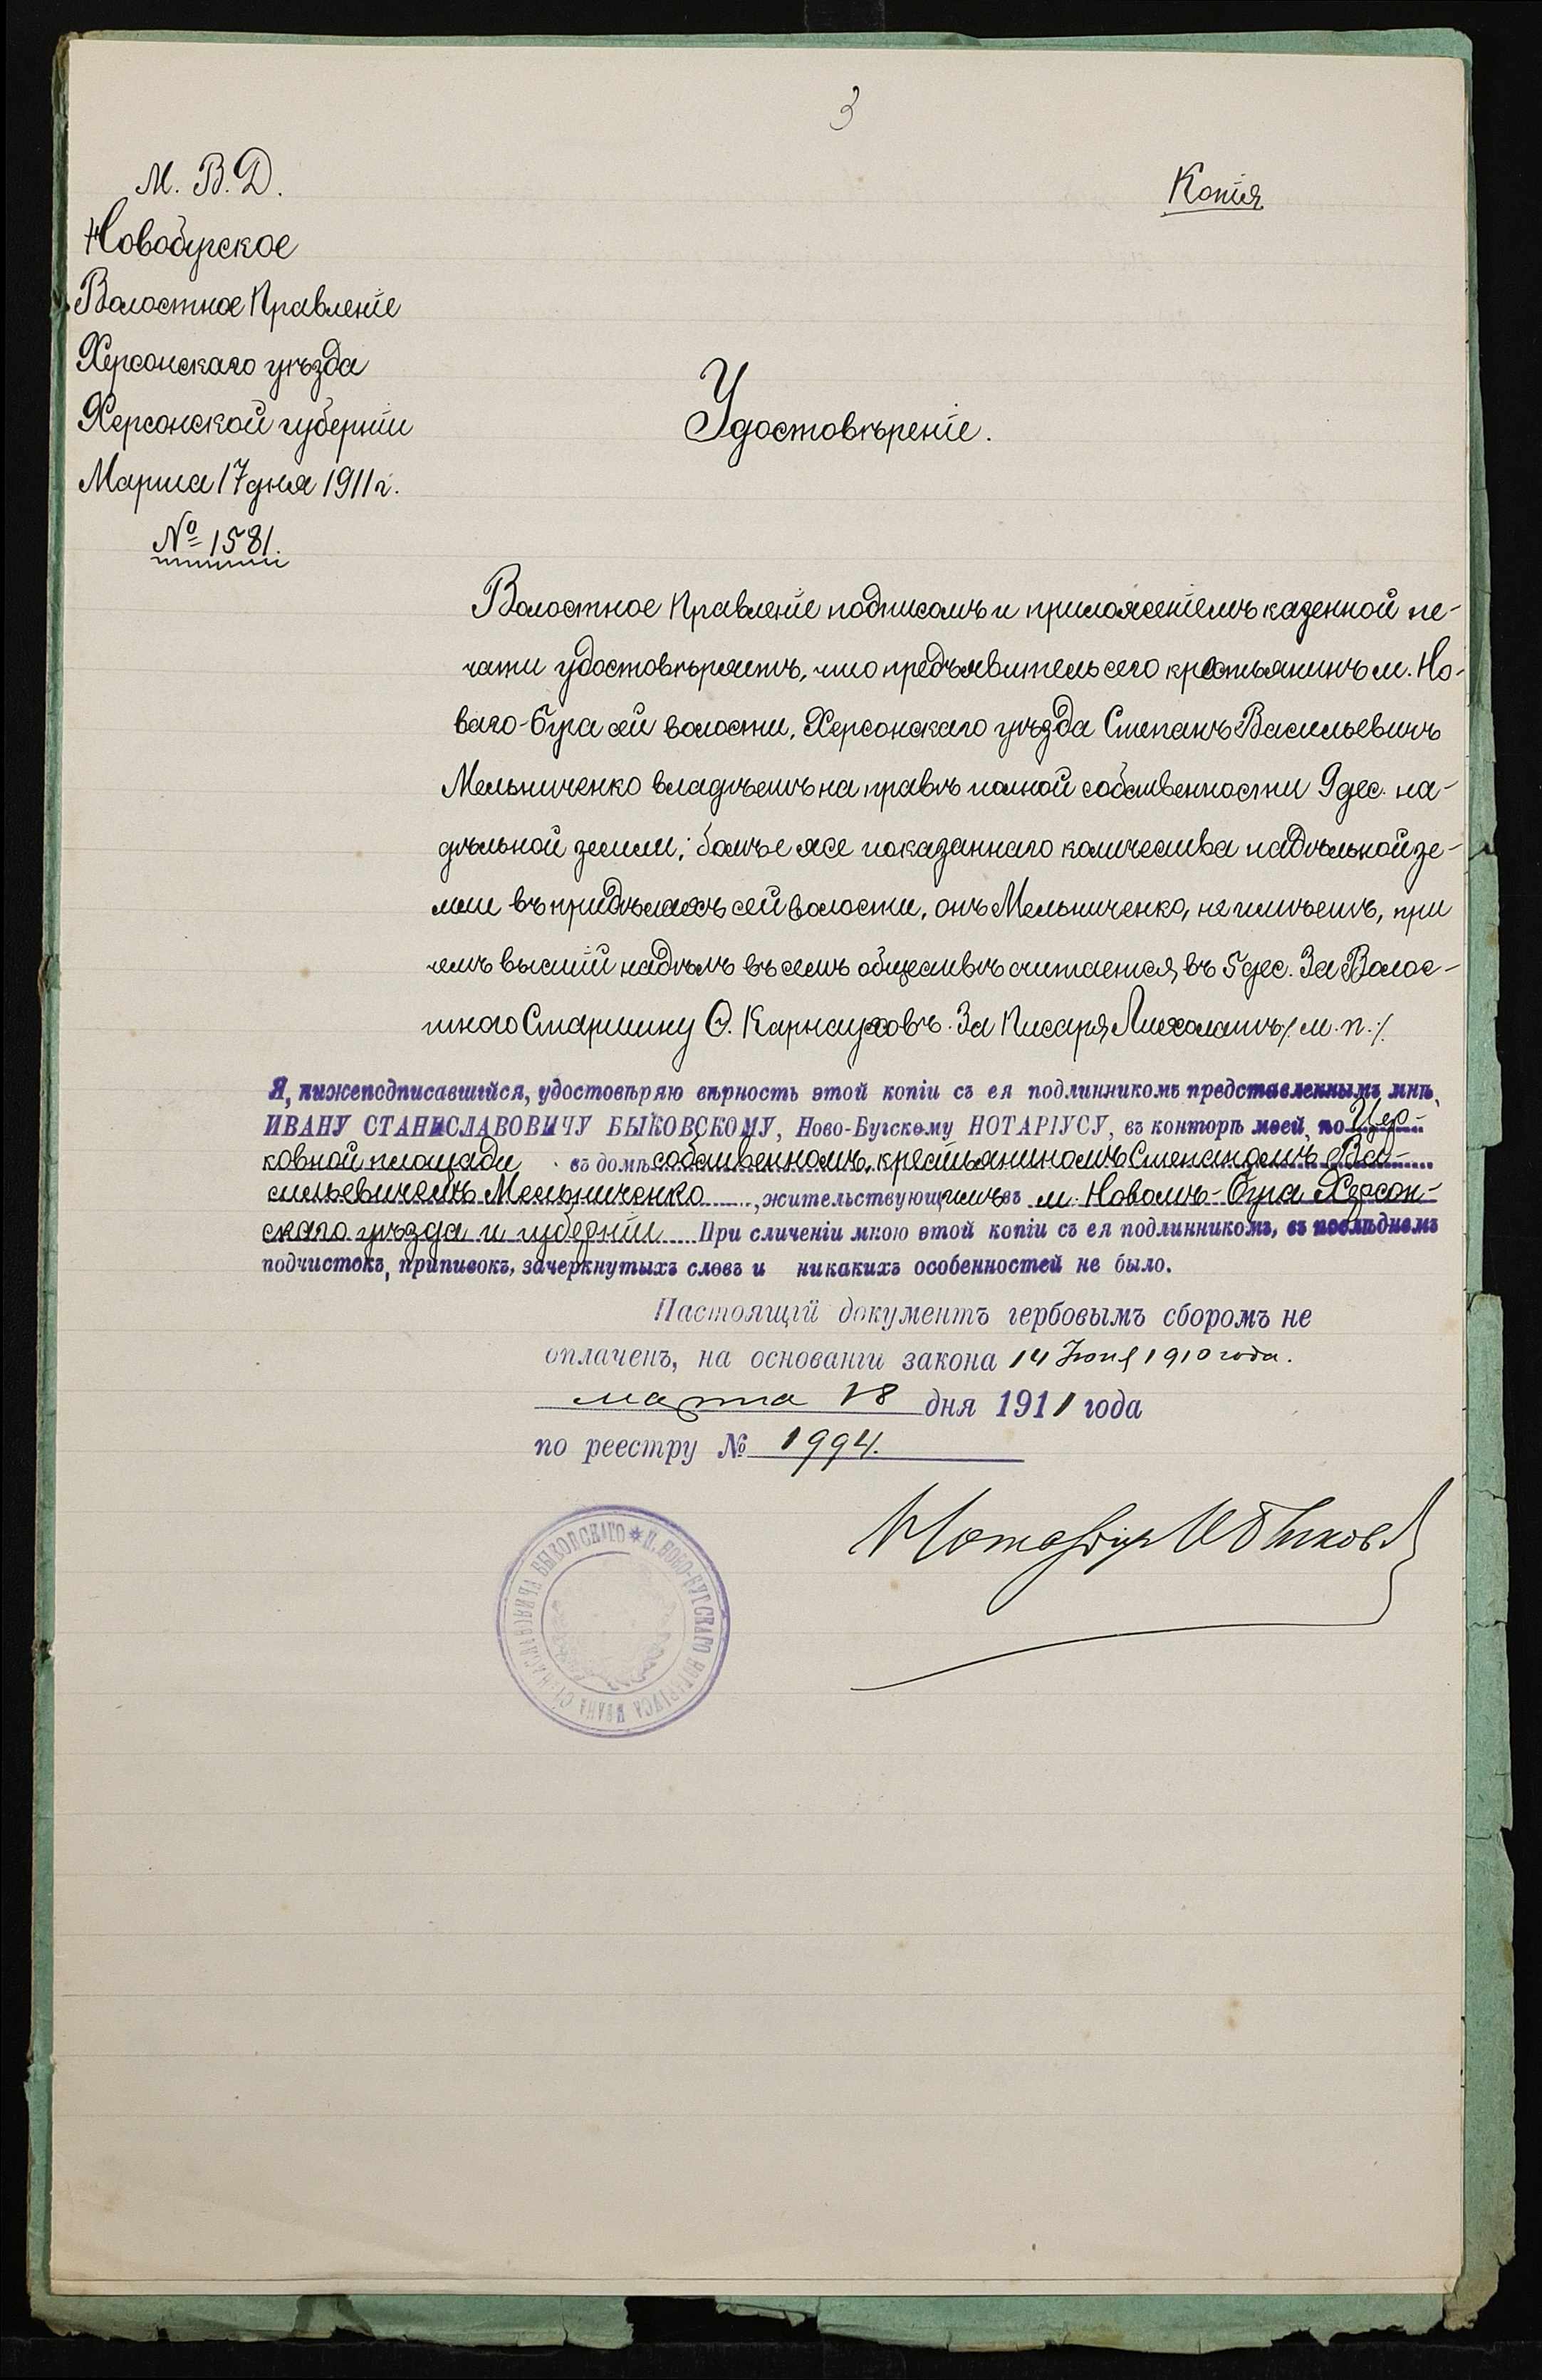 3
М. В. Д.
Новобугское
Волостное Правленіе
Херсонскаго уѣзда
Херсонской губерніи
Марта 17 дня 1911 г.
№ 1581.
Копія
Удостовѣреніе.
Волостное Правленіе подписомъ и приложеніемъ казенной пе-
чати удостовѣряетъ, что предъявитель сего крестьянинъ м. Но-
ваго-Буга сей волости, Херсонскаго уѣзда Степанъ Васильевичъ
Мельниченко владѣетъ на правѣ полной собственности 9 дес. на-
дѣльной земли; болѣе же показаннаго количества надѣльной зе-
мли въ придѣлахъ сей волости, онъ Мельниченко, не имѣетъ, при
чемъ высшій надѣлъ въ семъ обществѣ считается въ 5 дес. За Волос-
тного Старшину О. Карнауховъ. За Писаря /м. п./.
Я, нижеподписавшійся, удостовѣряю вѣрность этой копіи съ ея подлинникомъ представленнымъ мнѣ,
ИВАНУ СТАНИСЛАВОВИЧУ БЫКОВСКОМУ, Ново-Бугскому НОТАРІУСУ, въ конторѣ моей, по Цер-
ковной площади въ домѣ собственномъ, крестьяниномъ Степаномъ Ва-
сильевичемъ Мельниченко, жительствующимъ въ м. Новомъ-Буга Херсон-
скаго уѣзда и губерніи При сличеніи мною этой копіи съ ея подлинникомъ, въ послѣднемъ
подчистокъ, приписокъ, зачеркнутыхъ словъ и никакихъ особенностей не было.
Настоящій документъ гербовымъ сборомъ не
оплаченъ, на основаніи закона 14 Іюня 1910 года.
марта 18 дня 1911 года
по реестру № 1994.
Нотаріус И Быковс
* Н. НОВО-БУГСКАГО НОТАРІУСА ИВАНА СТАНИСЛАВОВИЧА БЫКОВСКАГО